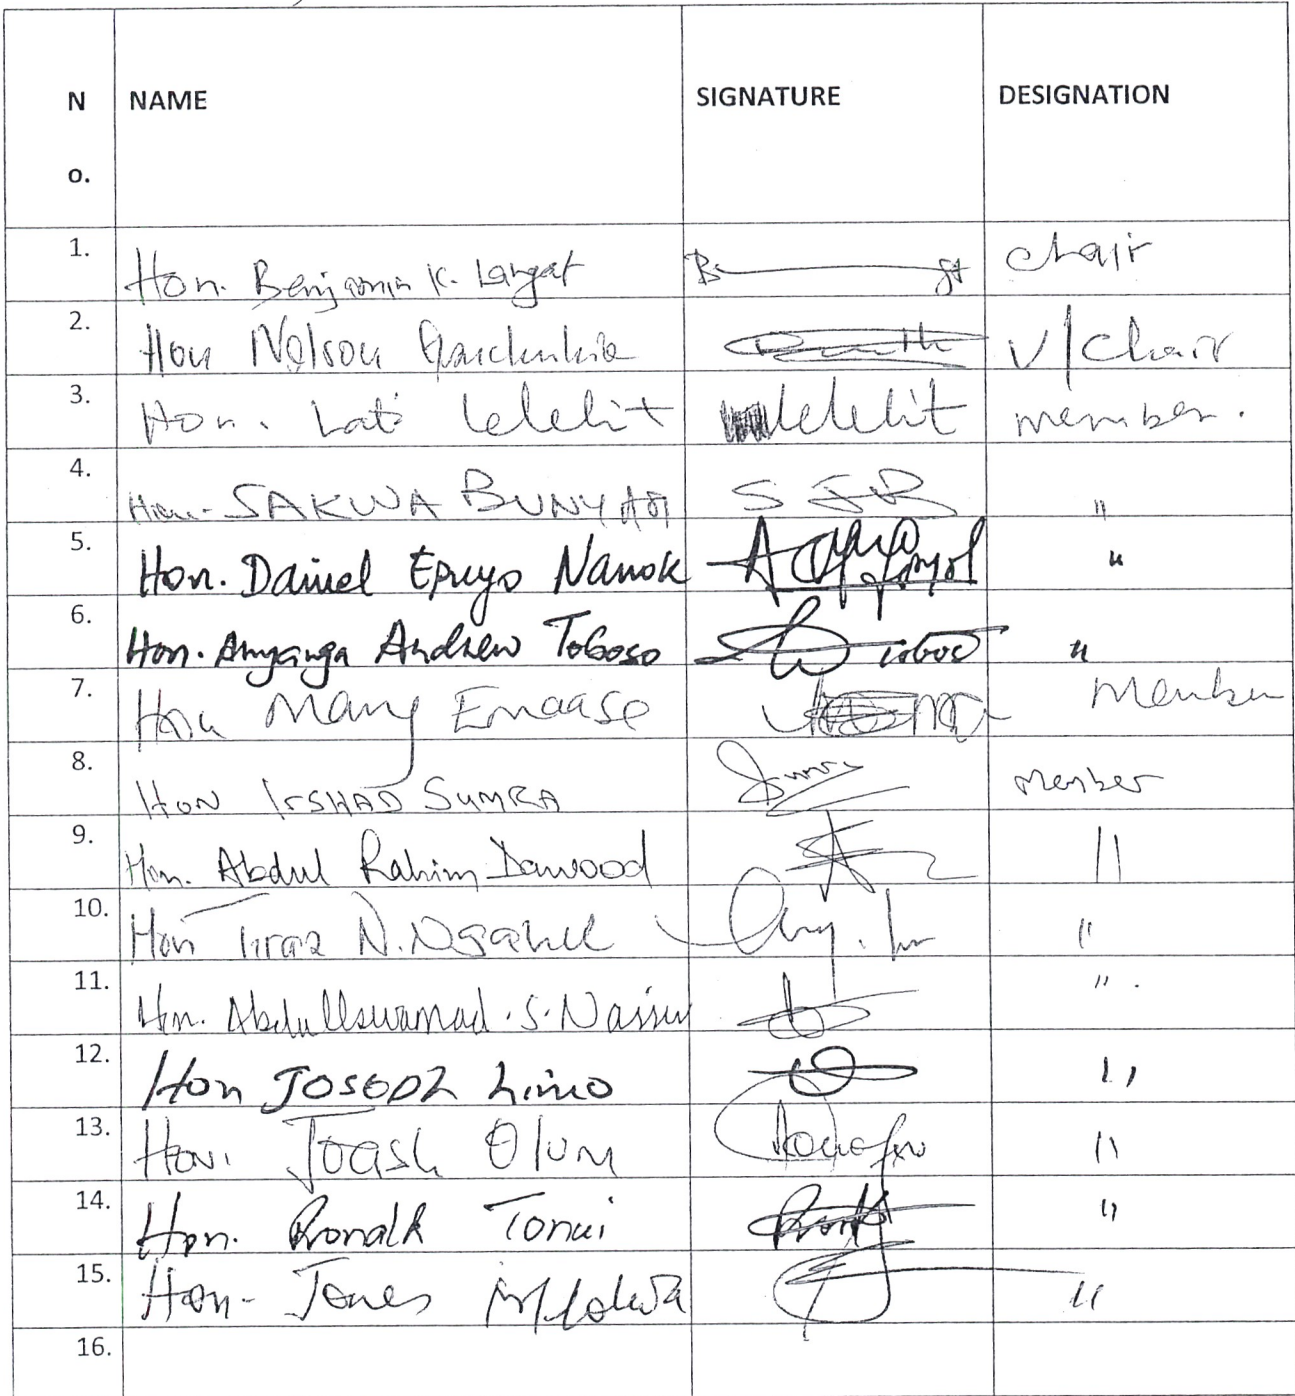 N NAME SIGNATURE DESIGNATION
o.
1. Hon. Benjamin K. Langat Chair
2. Hon Nelson Gaichuhie V/Chair
3. Hon. Lati Lelelit Lelelit member.
4. Hon. SAKWA BUNYASI SJB "
5. Hon. Daniel Epuyo Nanok "
6. Hon. Anyanga Andrew Toboso "
7. Hon Mary Emaase Member
8. HON IRSHAD SUMRA Member
9. Hon. Abdul Rahim Dawood "
10. Hon Tiras N. Ngahu "
11. Hon. Abdullswamad .S. Nassir ".
12. Hon JOSEPH Limo "
13. Hon. Joash Olum "
14. Hon. Ronald Tonui "
15. Hon- Jones Mlolwa "
16.